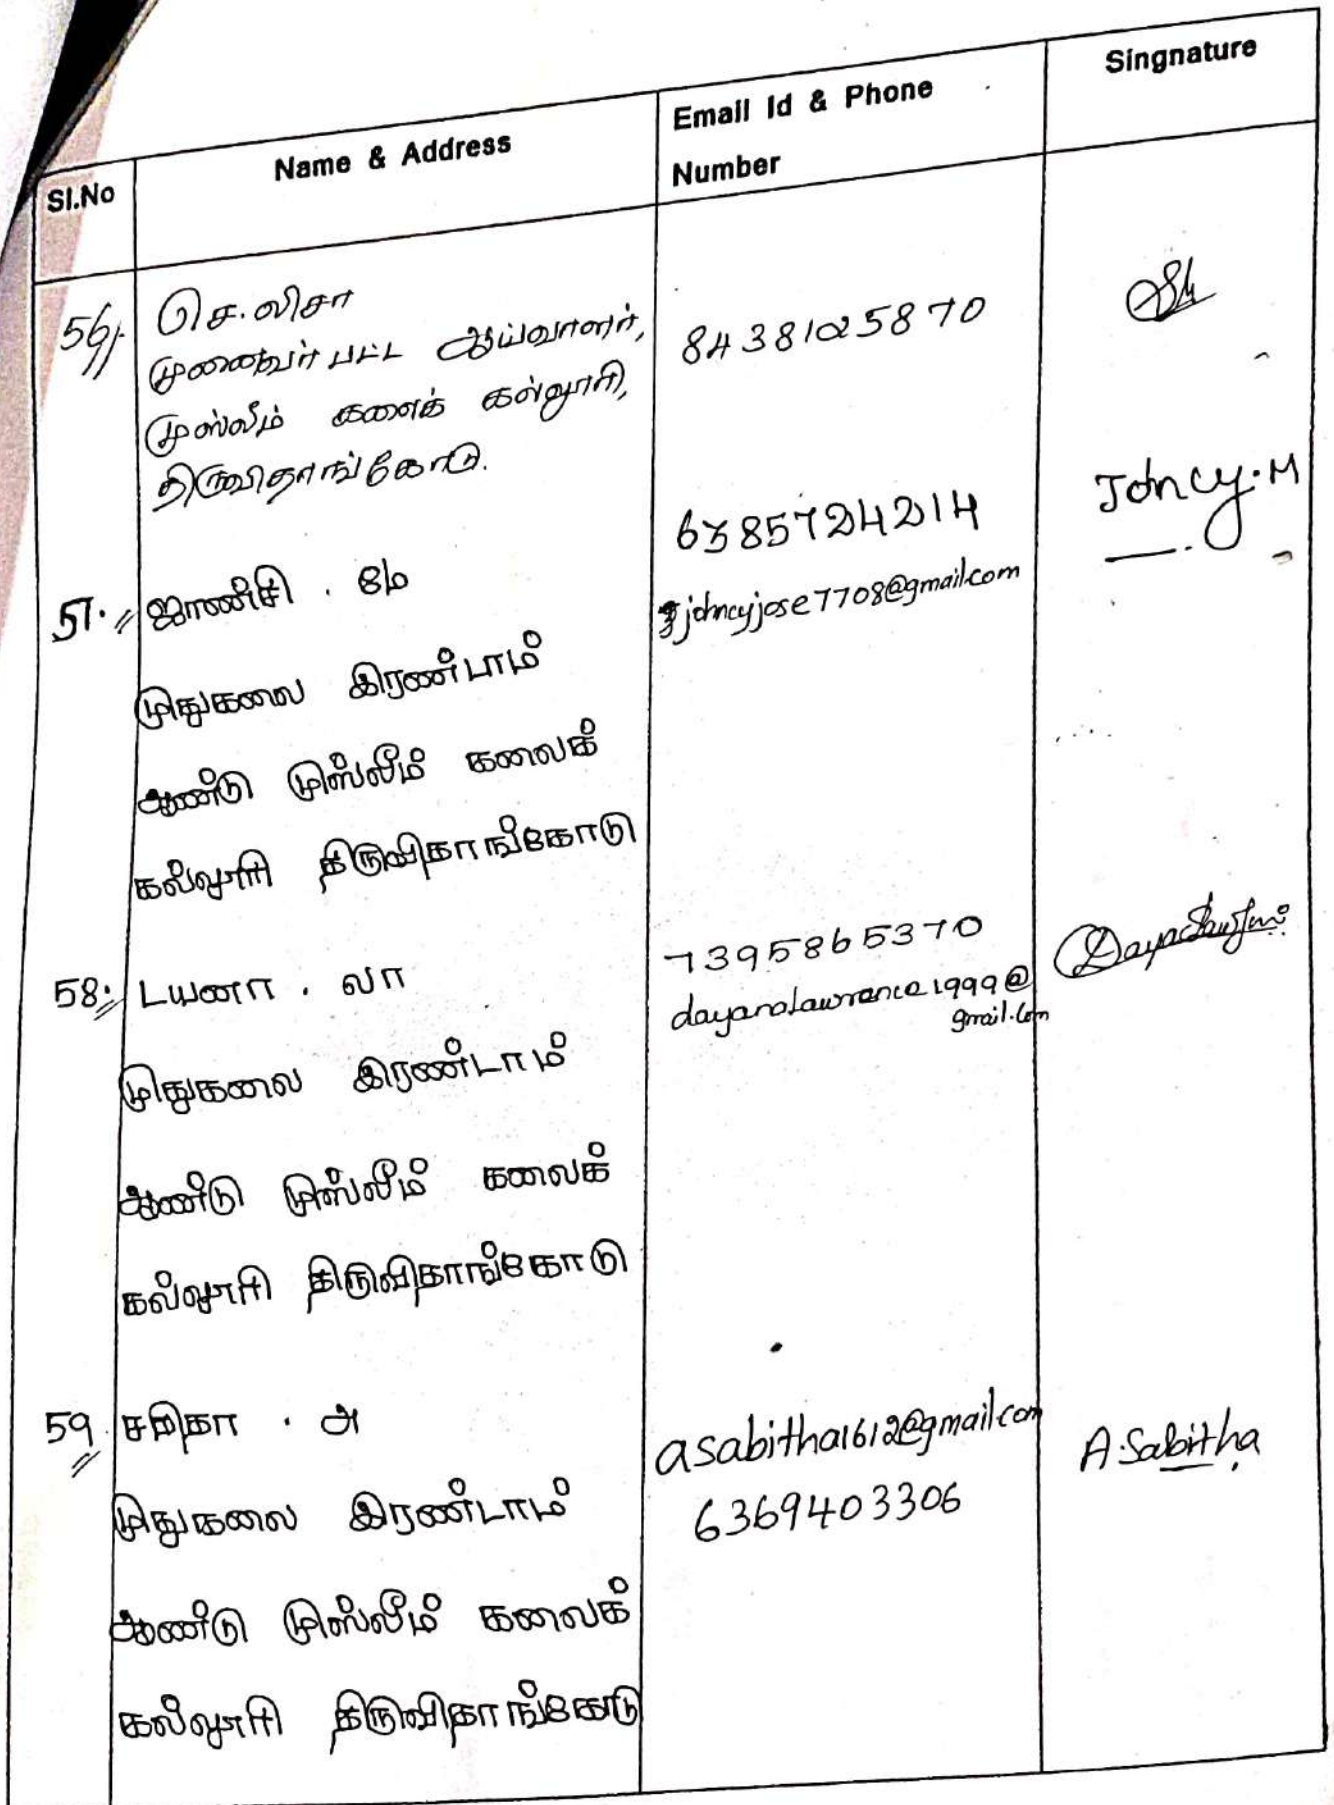 Sl.No
Name & Address
Email Id & Phone
Number
Singnature
56
செ.லிசா
முனைவர் பட்ட ஆய்வாளர்,
முஸ்லீம் கலைக் கல்லூரி,
திருவிதாங்கோடு.
8438125870
57.
ஜாண்சி . மே
முதுகலை இரண்டாம்
ஆண்டு முஸ்லீம் கலைக்
கல்லூரி திருவிதாங்கோடு
6385724214
johncyjose7708@gmail.com
Johncy.M
58.
டயனா . லா
முதுகலை இரண்டாம்
ஆண்டு முஸ்லீம் கலைக்
கல்லூரி திருவிதாங்கோடு
7395865370
dayanalawrance1999@
gmail.com
59.
சபிதா . அ
முதுகலை இரண்டாம்
ஆண்டு முஸ்லீம் கலைக்
கல்லூரி திருவிதாங்கோடு
asabitha1612@gmail.com
6369403306
A.Sabitha